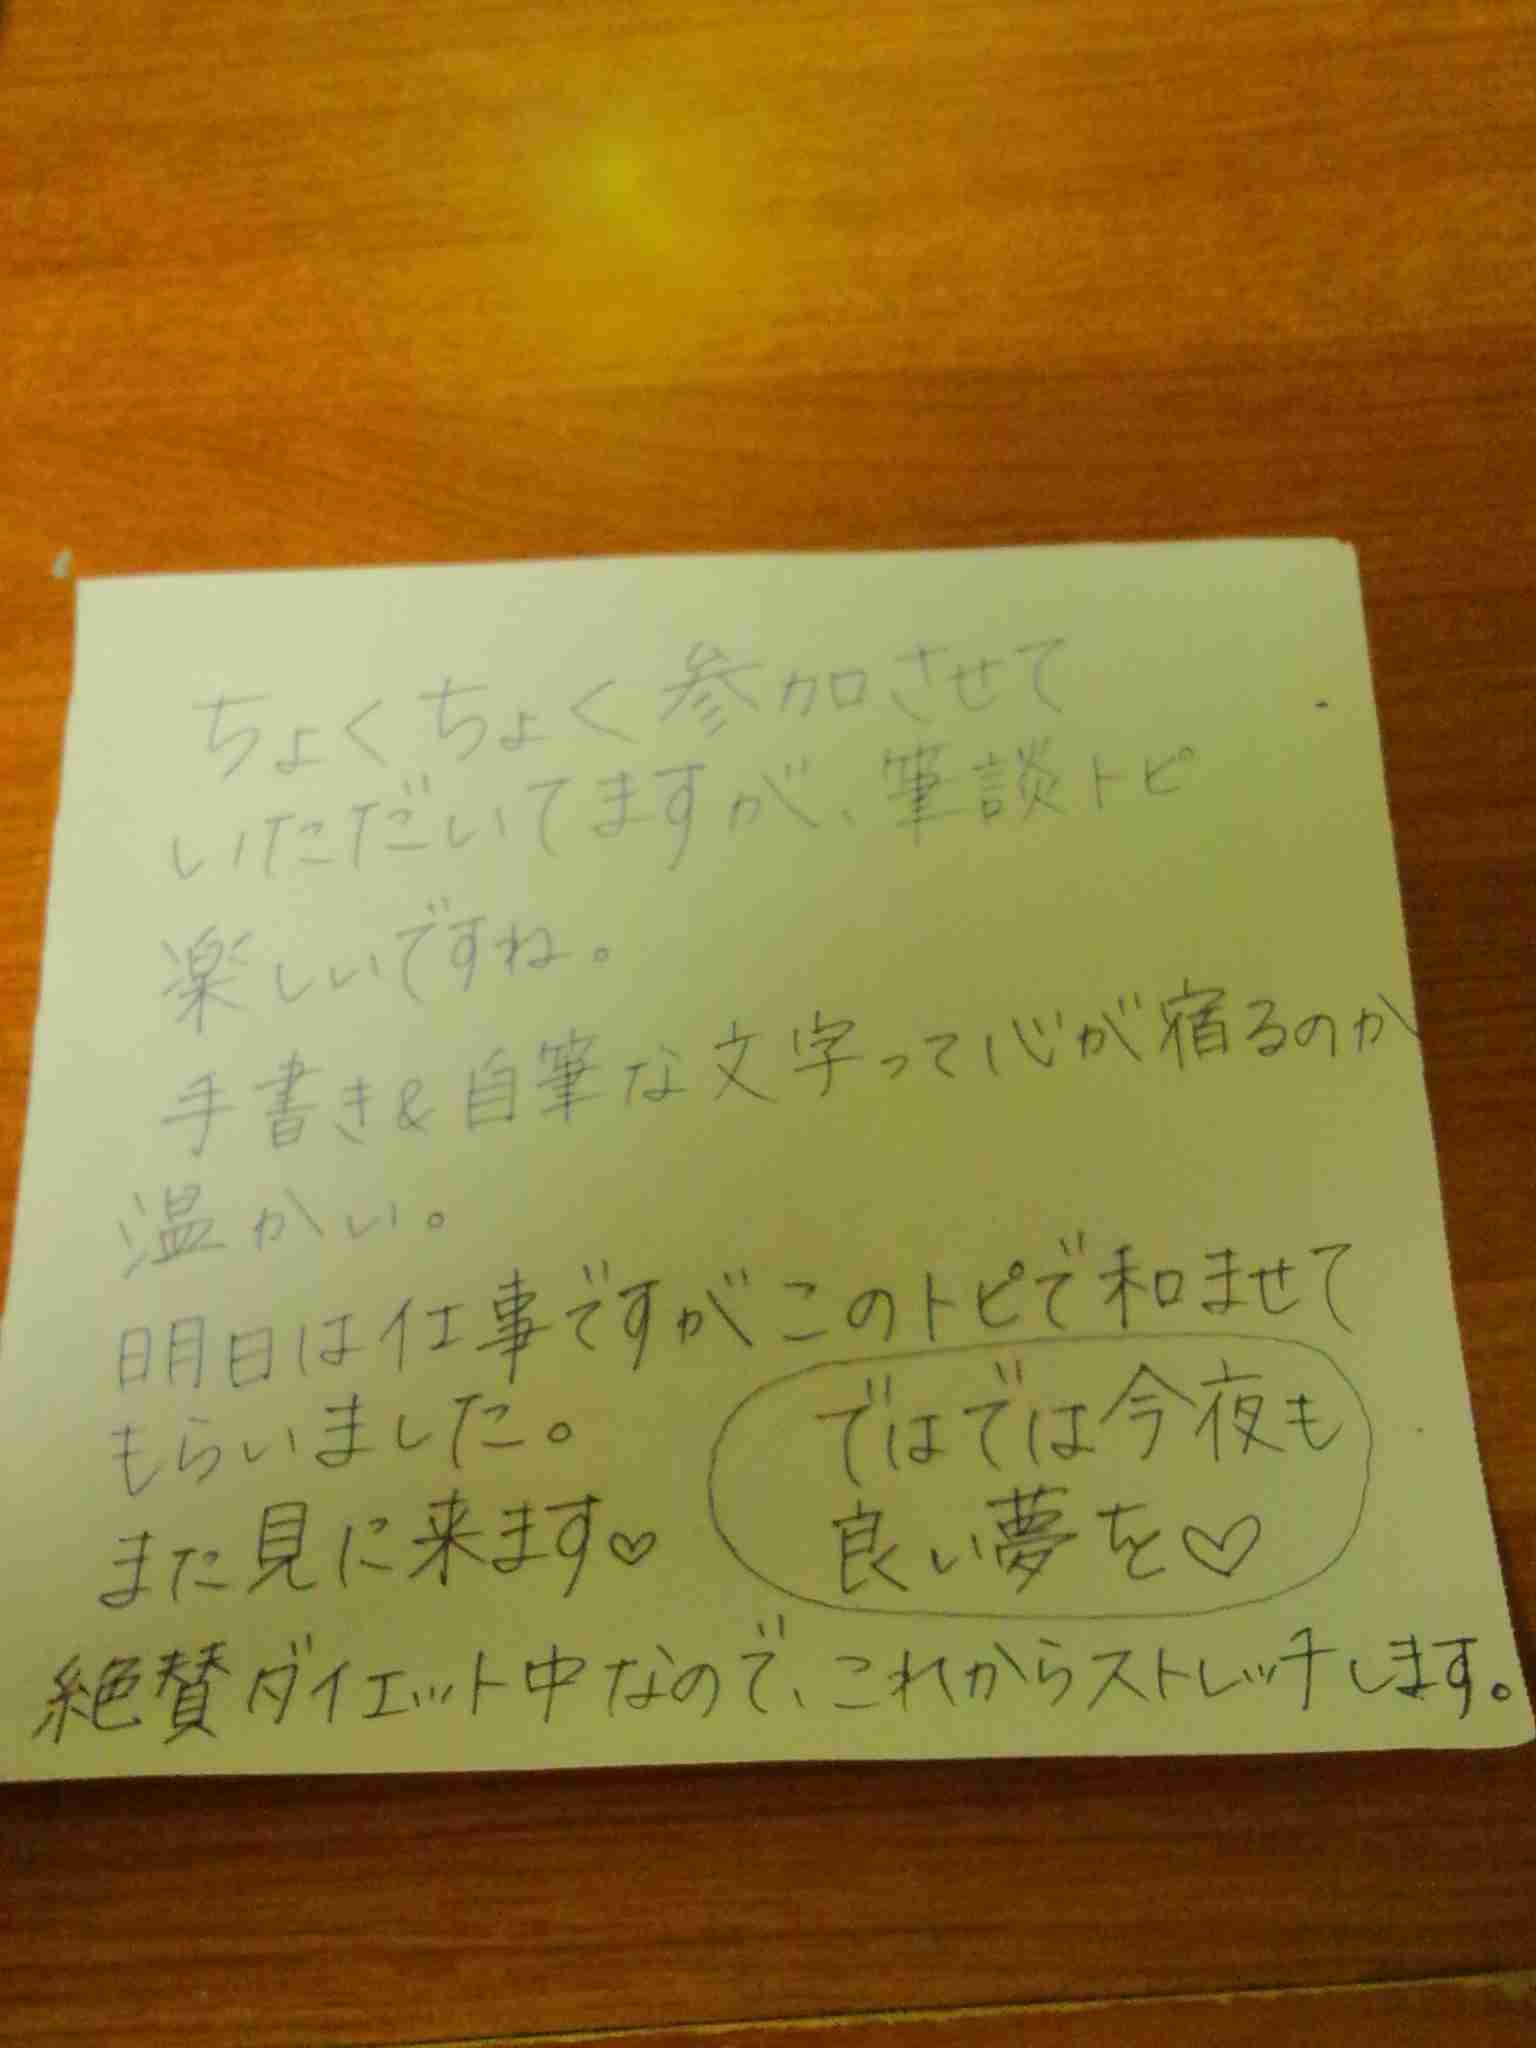 ちょくちょく参加させて
いただいてますが、筆談トピ
楽しいですね。
手書き&自筆な文字って心が宿るのか
温かい。
明日は仕事ですがこのトピで和ませて
もらいました。
また見に来ます♡
ではでは今夜も
良い夢を♡
絶賛ダイエット中なので、これからストレッチします。